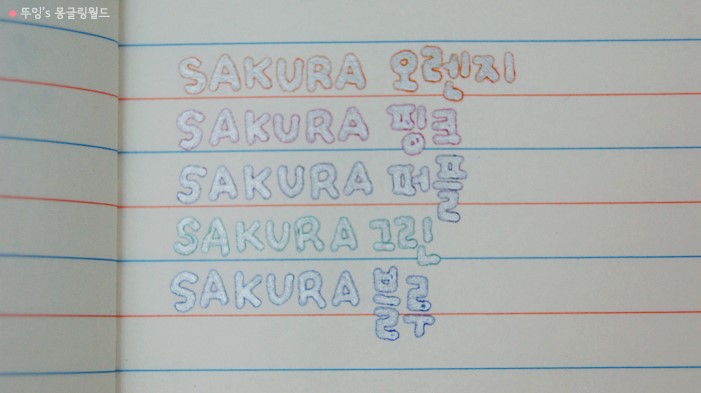 뚜잉's 몽글링월드
SAKURA 오렌지
SAKURA 핑크
SAKURA 퍼플
SAKURA 그린
SAKURA 블루